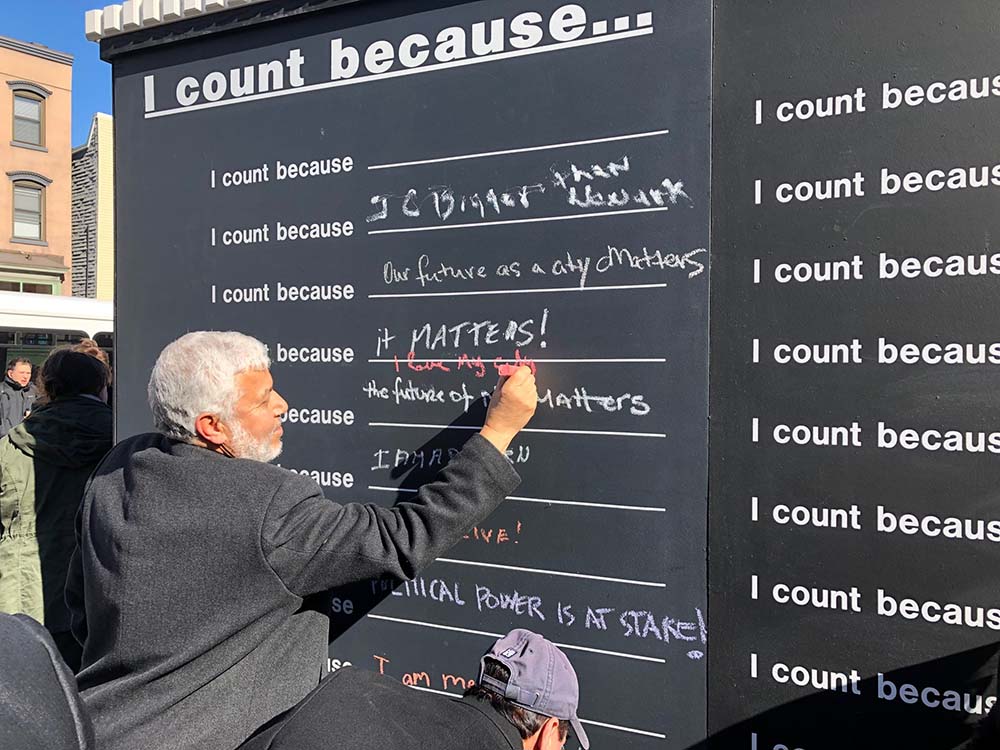 I count because...
I count because
I count because I C Bigger than Newark
I count because Our future as a city Matters
because it MATTERS!
I love My city
because the future of Matters
cause I AM A
IVE!
se POLITICAL POWER IS AT STAKE!
se I am me
I count becaus
I count becaus
I count becaus
I count becaus
I count becaus
I count becaus
I count becaus
I count becaus